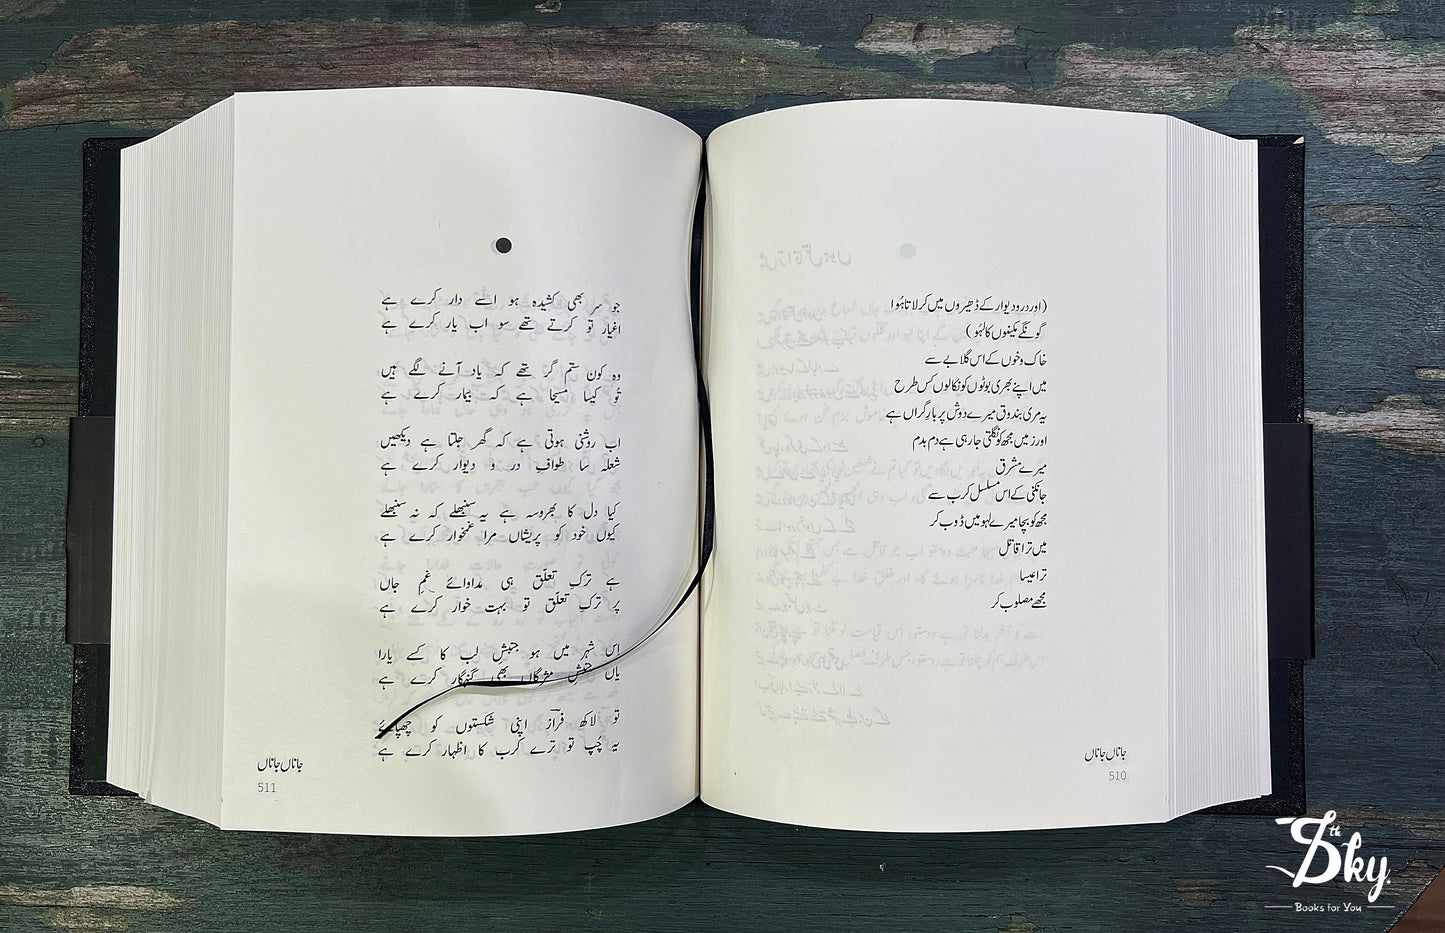 (اور در و دیوار کے ڈھیروں میں کرلاتا ہُوا
گونگے مکینوں کا لہُو)
خاک و خوں کے اس گلابے سے
میں اپنے بھری بوٹوں کو نکالوں کس طرح
یہ مری بندوق میرے دوش پر بارِ گراں ہے
اور زمیں مجھ کو نگلتی جا رہی ہے دم بدم
میرے مشرق
جانکنی کے اس مسلسل کرب سے
مجھ کو بچا میرے لہو میں ڈوب کر
میں ترا قاتل
ترا عیسا
مجھے مصلوب کر
جاناں جاناں
510
جو سر بھی کشیدہ ہو اسے دار کرے ہے
اغیار تو کرتے تھے سو اب یار کرے ہے
وہ کون ستم گر تھے کہ یاد آنے لگے ہیں
تُو کیسا مسیحا ہے کہ بیمار کرے ہے
اب روشنی ہوتی ہے کہ گھر جلتا ہے دیکھیں
شعلہ سا طوافِ در و دیوار کرے ہے
کیا دل کا بھروسہ ہے یہ سنبھلے کہ نہ سنبھلے
کیوں خود کو پریشاں مرا غمخوار کرے ہے
ہے ترکِ تعلّق ہی مداوائے غمِ جاں
پر ترکِ تعلّق تو بہت خوار کرے ہے
اِس شہر میں ہو جنبشِ لب کا کسے یارا
یاں جنبشِ مژگاں بھی گنہگار کرے ہے
تو لاکھ فرازؔ اپنی شکستوں کو چھپائے
یہ چُپ تو ترے کرب کا اظہار کرے ہے
جاناں جاناں
511
7th Sky.
Books for You